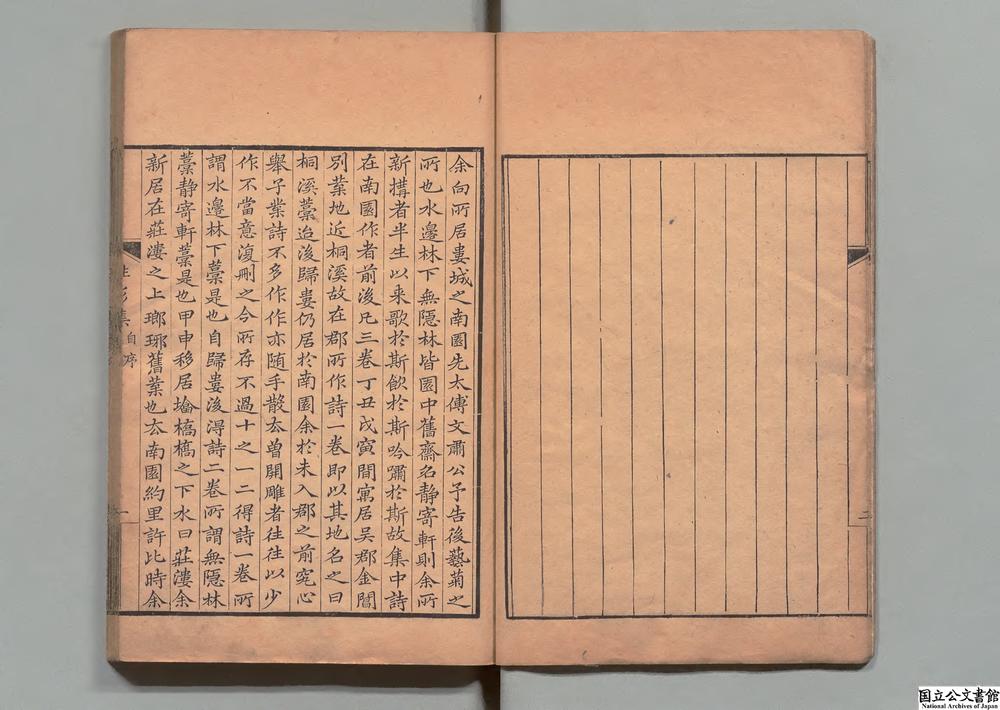 二
余向所居婁城之南園先太傅文肅公予告後藝菊之
所也水邊林下無隱林皆園中舊齋名静寄軒則余所
新搆者半生以來歌於斯飲於斯吟嘯於斯故集中詩
在南園作者前後凡三卷丁丑戊寅間寓居吳郡金閶
別業地近桐溪故在郡所作詩一卷即以其地名之曰
桐溪藁迨後歸婁仍居於南園余於未入郡之前究心
舉子業詩不多作作亦随手散去曽開雕者往往以少
作不當意復刪之今所存不過十之一二得詩一卷所
謂水邊林下藁是也自歸婁後淂詩二卷所謂無隱林
藁静寄軒藁是也甲申移居墖橋之下水曰莊漊余
新居在莊漊之上瑯琊舊業也去南園約里許比時余
集
自序
一
国立公文書館
National Archives of Japan